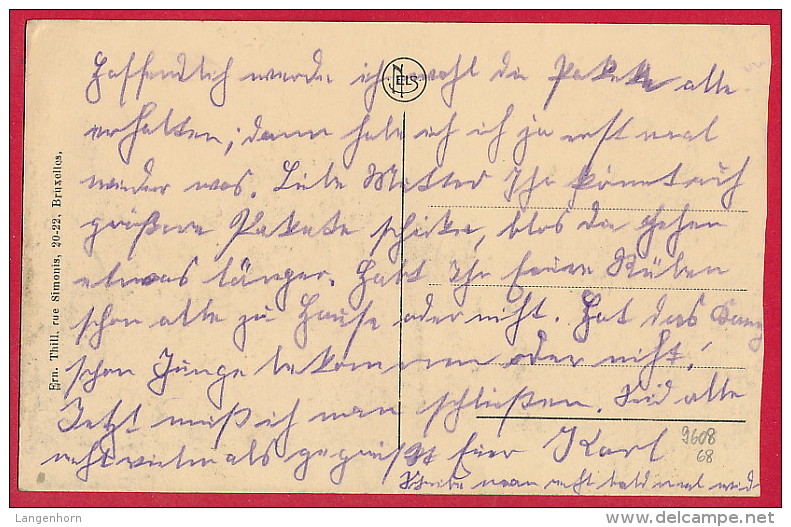 Hoffendlich werde ich wohl die Pakete alle
erhalten; dann habe ich ja erst mal
wieder was. Liebe Mutter Ihr könnt auch
größere Pakete schicken, blos die gehen
etwas länger. Habt Ihr Eure Rüben
schon alle zu Hause oder nicht. Hat das
schon Junge bekommen oder nicht!
Jetzt muß ich nun schließen. Seid alle
recht vielmals gegrüßt Euer Karl
Schreibt nun recht bald mal wied
NELS
Ern. Thill, rue Simonis, 20-22, Bruxelles.
9608
68
Langenhorn
delcampe.net